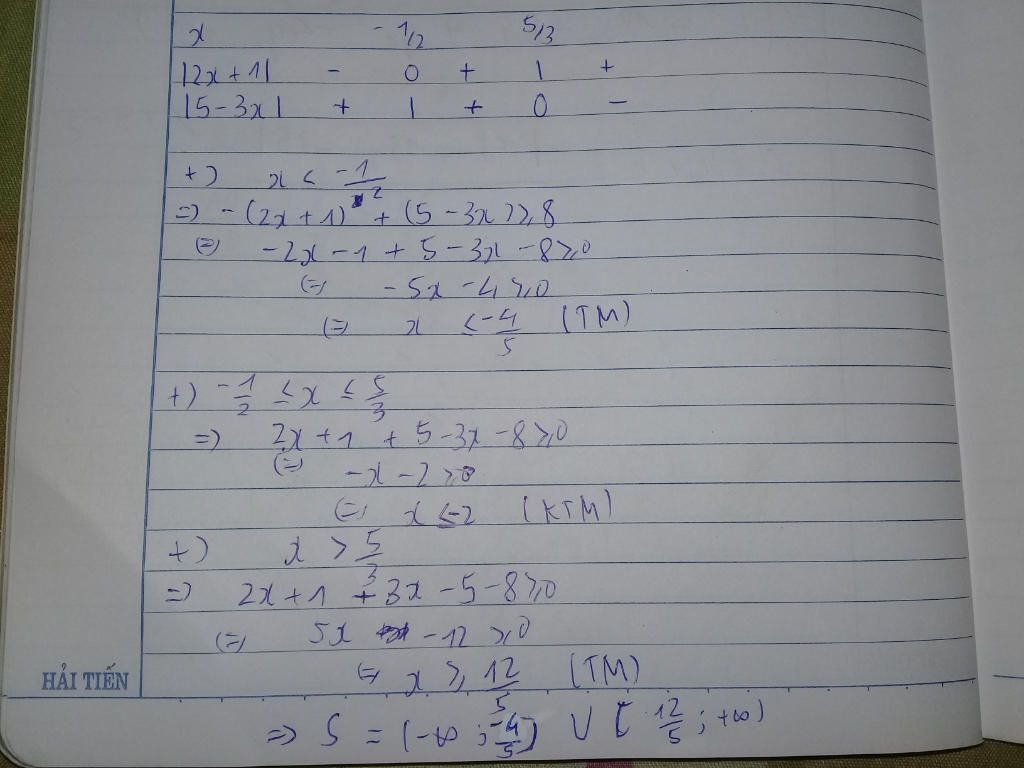 x -1/2 5/3
|2x+1| - 0 + | +
|5-3x| + | + 0 -
+) x < -1/2
=> -(2x+1) + (5-3x) ≥ 8
(=) -2x-1+5-3x-8≥0
(=) -5x-4≥0
(=) x ≤ -4/5 (TM)
+) -1/2 ≤ x ≤ 5/3
=> 2x+1+5-3x-8≥0
(=) -x-2≥0
(=) x ≤ -2 (KTM)
+) x > 5/3
=> 2x+1+3x-5-8≥0
(=) 5x -12≥0
(=) x ≥ 12/5 (TM)
HẢI TIẾN
=> S = (-∞; -4/5] ∪ [12/5; +∞)